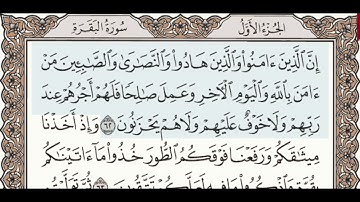 الجزء الأول سورة البقرة
إِنَّ ٱلَّذِينَ ءَامَنُوا۟ وَٱلَّذِينَ هَادُوا۟ وَٱلنَّصَٰرَىٰ وَٱلصَّٰبِـِٔينَ مَنْ
ءَامَنَ بِٱللَّهِ وَٱلْيَوْمِ ٱلْءَاخِرِ وَعَمِلَ صَٰلِحًا فَلَهُمْ أَجْرُهُمْ عِندَ
رَبِّهِمْ وَلَا خَوْفٌ عَلَيْهِمْ وَلَا هُمْ يَحْزَنُونَ ٦٢ وَإِذْ أَخَذْنَا
مِيثَٰقَكُمْ وَرَفَعْنَا فَوْقَكُمُ ٱلطُّورَ خُذُوا۟ مَآ ءَاتَيْنَٰكُم